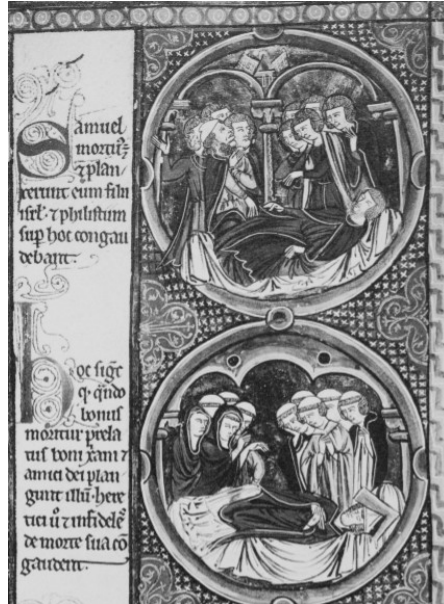 Samuel
mortuꝰ ē
⁊ plan
xerunt eum filii
isrl̃. ⁊ philistiim
sup̱ hoc congau
debant.
Hoc sig̃t
q̱ qñdo
bonus
moritur prela
tus boni xp̃iani ⁊
amici dei plan
gunt illũ. here
tici ũ ⁊ infidelẽs
de morte sua cõ
gaudent.